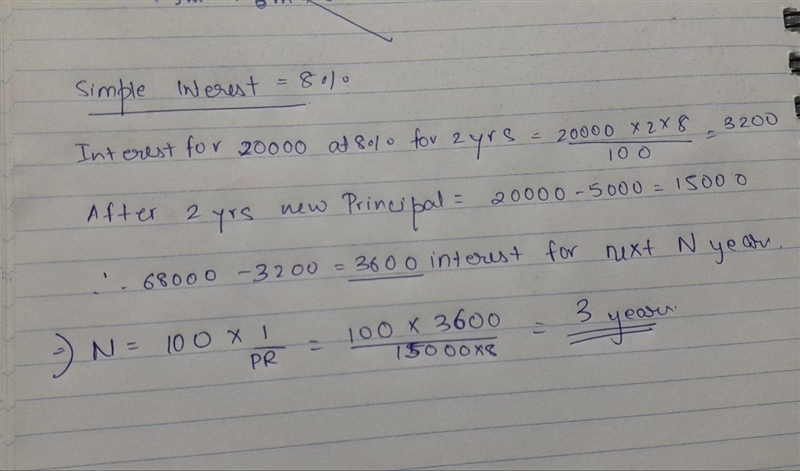 Simple Interest = 8%
Interest for 20000 at 8% for 2 yrs = 20000 × 2 × 8 / 100 = 3200
After 2 yrs new Principal = 20000 - 5000 = 15000
∴ 68000 - 3200 = 3600 interest for next N year.
⇒) N = 100 × 1 / PR = 100 × 3600 / 15000×8 = 3 years.